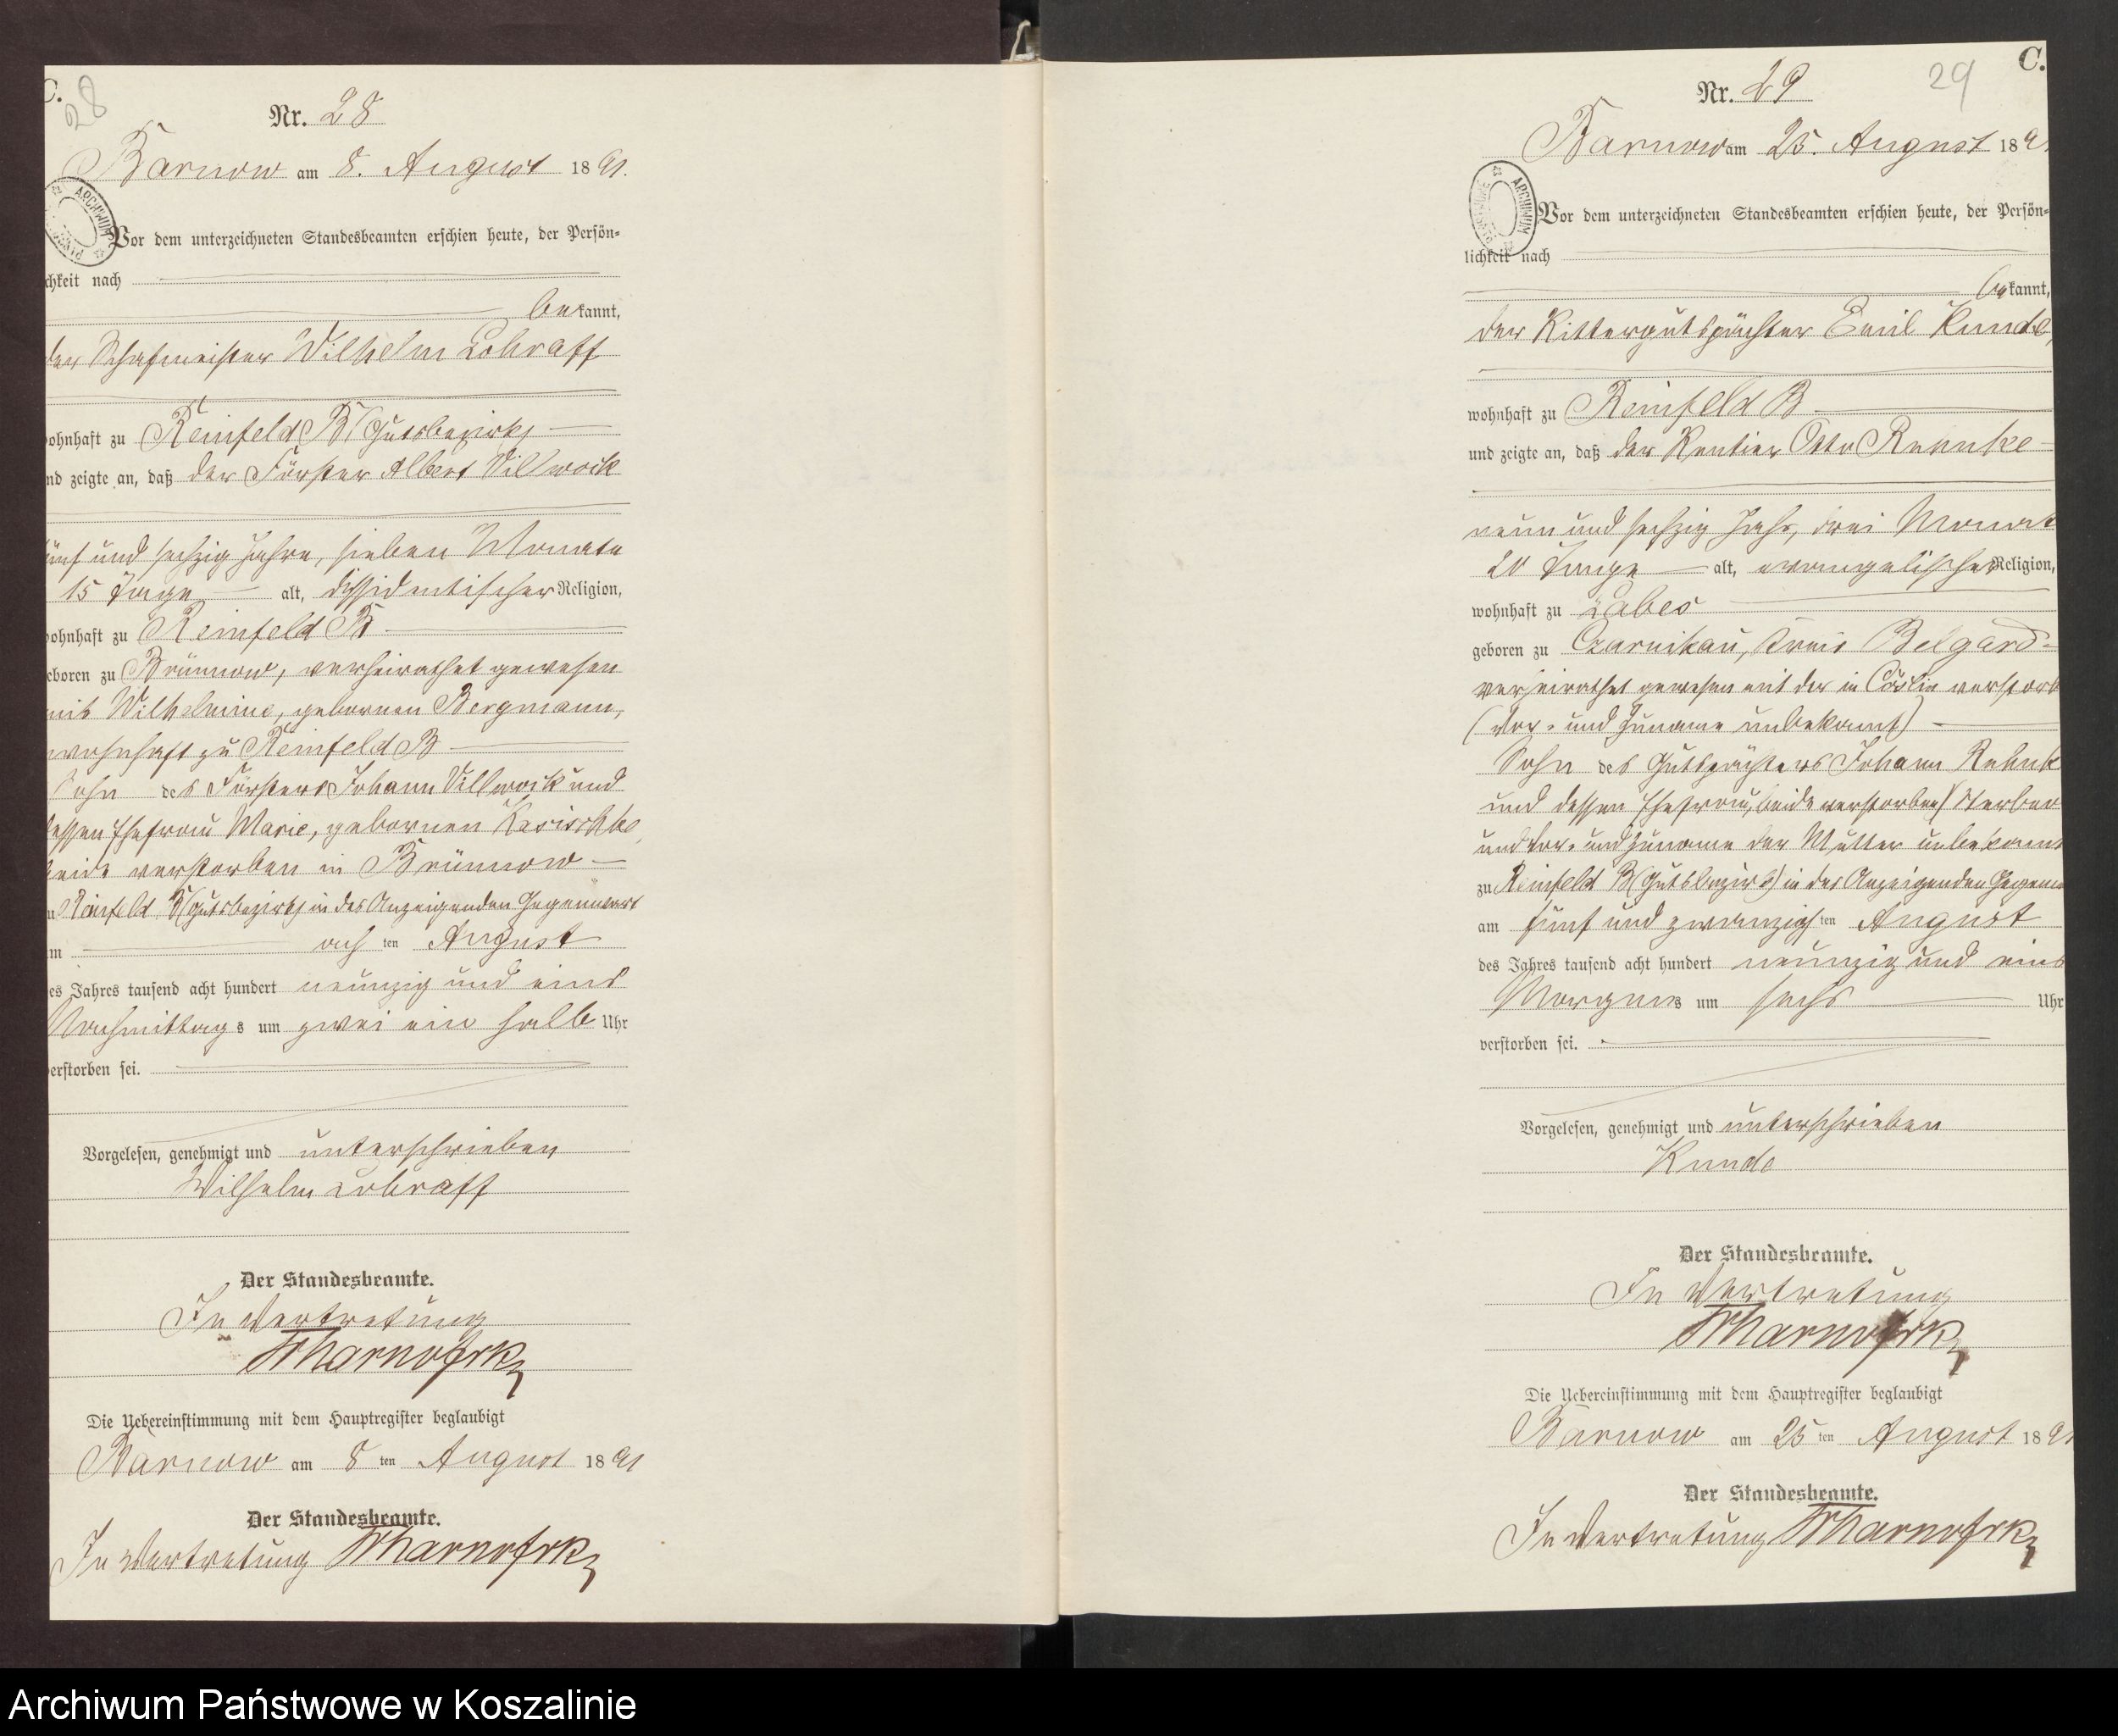 C.
28
Nr. 28
Barnow am 8. August 1891.
Vor dem unterzeichneten Standesbeamten erschien heute, der Persön-
chkeit nach
bekannt,
der Schafmeister Wilhelm Lohraff
wohnhaft zu Reinfeld B (Gutsbezirk)
nd zeigte an, daß der Förster Albert Villwock
fünf und sechzig Jahre, sieben Monate
15 Tage alt, dissidentischer Religion,
wohnhaft zu Reinfeld B
eboren zu Brünnow, verheirathet gewesen
mit Wilhelmine, gebornen Bergmann,
wohnhaft zu Reinfeld B
Sohn des Försters Johann Villwock und
dessen Ehefrau Marie, gebornen
beide verstorben in Brünnow
zu Reinfeld B (Gutsbezirk) in des Anzeigenden Gegenwart
am ach ten August
es Jahres tausend acht hundert neunzig und eins
Nachmittags um zwei ein halb Uhr
verstorben sei.
Vorgelesen, genehmigt und unterschrieben
Wilhelm Lohraff
Der Standesbeamte.
In Vertretung
Die Uebereinstimmung mit dem Hauptregister beglaubigt
Barnow am 8 ten August 1891
Der Standesbeamte.
In Vertretung
C.
29
Nr. 29
Barnow am 25. August 189
ARCHIWUM
Vor dem unterzeichneten Standesbeamten erschien heute, der Persön-
lichkeit nach
bekannt,
der Rittergutspächter Emil Kunde,
wohnhaft zu Reinfeld B
und zeigte an, daß der Rentier Otto Rehnke
neun und sechzig Jahr, drei Monat
20 Tage alt, evangelischer Religion,
wohnhaft zu Labes
geboren zu Czarnikau, Kreis Belgard
verheirathet gewesen mit der in Cöslin verstorb
(Vor- und Zuname unbekannt)
Sohn des Gutspächters Johann Rehnk
und dessen Ehefrau, beide verstorben (Sterbeo
und Vor- und Zuname der Mutter unbekannt
zu Reinfeld B (Gutsbezirk) in des Anzeigenden Gegenw
am fünf und zwanzigsten August
des Jahres tausend acht hundert neunzig und eins
Morgens um sechs Uhr
verstorben sei.
Vorgelesen, genehmigt und unterschrieben
Kunde
Der Standesbeamte.
In Vertretung
Die Uebereinstimmung mit dem Hauptregister beglaubigt
Barnow am 25 ten August 1891
Der Standesbeamte.
In Vertretung
Archiwum Państwowe w Koszalinie